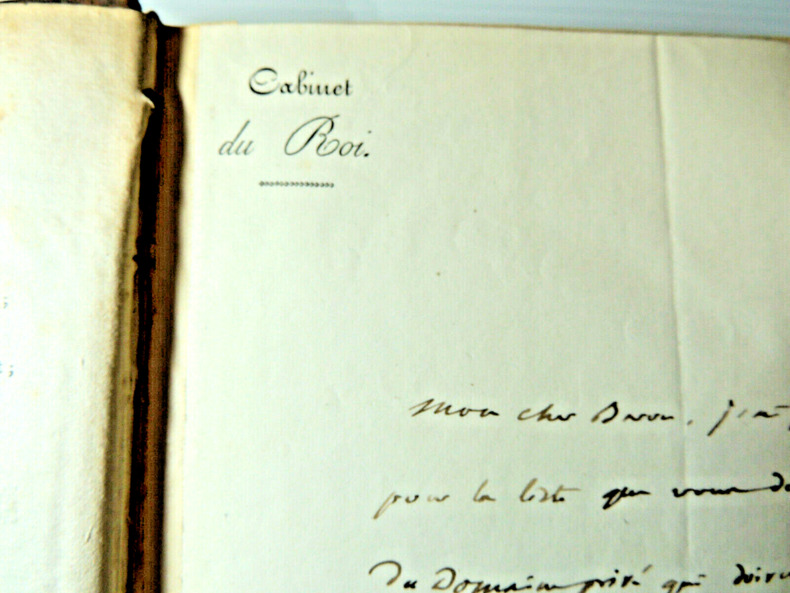 Cabinet
du Roi.
mon cher Baron, j'
pour la liste que vous
du Domaine privé qui
;
;